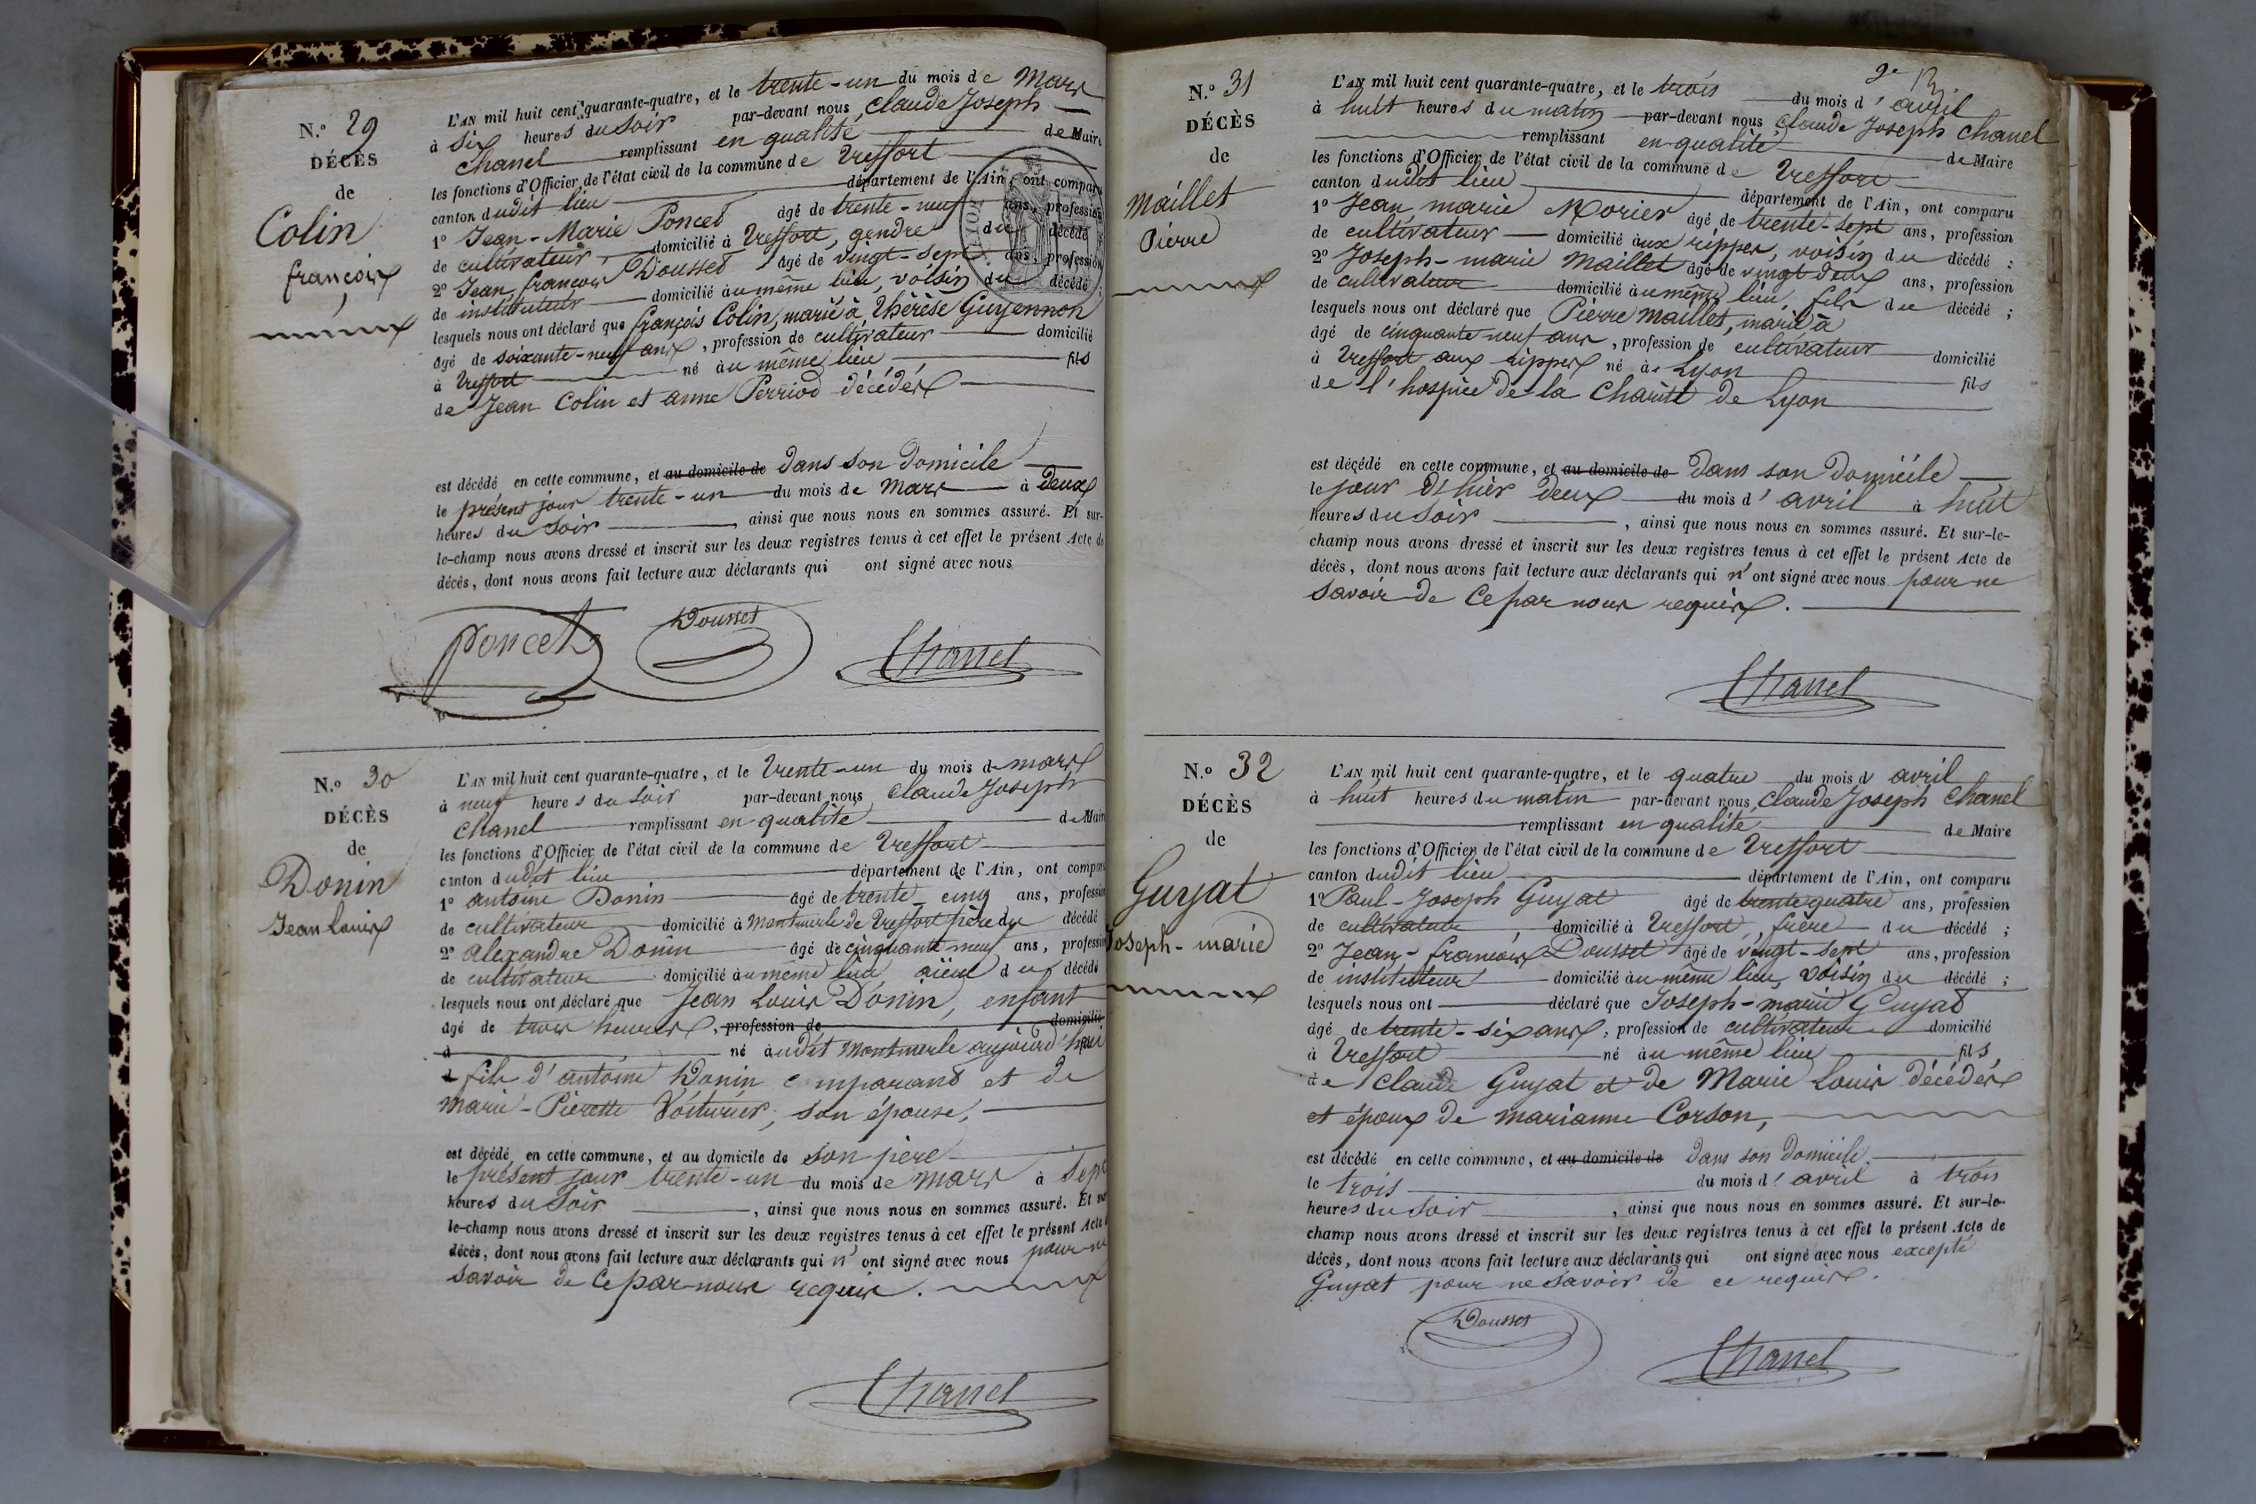 N.º 29
DÉCÈS
de
Colin
françois
L'AN mil huit cent quarante-quatre, et le trente-un du mois de Mars
à six heures du soir par-devant nous Claude Joseph
Chanel remplissant en qualité de Maire
les fonctions d'Officier de l'état civil de la commune de Treffort
canton dudit lieu département de l'Ain, ont comparu
1º Jean-Marie Poncet âgé de trente-neuf ans, profession
de cultivateur, domicilié à Treffort, gendre du décédé
2º Jean françois Dousset âgé de vingt-sept ans, profession
de instituteur domicilié au même lieu, voisin du décédé ;
lesquels nous ont déclaré que françois Colin, marié à Thérèse Guyennon
âgé de soixante-neuf ans, profession de cultivateur domicilié
à Treffort né au même lieu fils
de Jean Colin et anne Perriod décédés
est décédé en cette commune, et au domicile de dans son domicile
le présent jour trente-un du mois de Mars à deux
heures du soir, ainsi que nous nous en sommes assuré. Et sur-
le-champ nous avons dressé et inscrit sur les deux registres tenus à cet effet le présent Acte de
décès, dont nous avons fait lecture aux déclarants qui ont signé avec nous
Poncet Dousset Chanel
N.º 30
DÉCÈS
de
Donin
Jean Louis
L'AN mil huit cent quarante-quatre, et le trente-un du mois de mars
à neuf heures du soir par-devant nous Claude Joseph
Chanel remplissant en qualité de Maire
les fonctions d'Officier de l'état civil de la commune de Treffort
canton dudit lieu département de l'Ain, ont comparu
1º antoine Donin âgé de trente cinq ans, profession
de cultivateur domicilié à Montmerle de Treffort père du décédé
2º alexandre Donin âgé de cinquante neuf ans, profession
de cultivateur domicilié au même lieu, aïeul du décédé
lesquels nous ont déclaré que Jean Louis Donin, enfant
âgé de trois heures, profession de domicilié
à né audit Montmerle aujourd'hui
fils d'antoine Donin comparant et de
marie-Pierette Voiturier, son épouse,
est décédé en cette commune, et au domicile de son père
le présent jour trente-un du mois de mars à sept
heures du soir, ainsi que nous nous en sommes assuré. Et sur
le-champ nous avons dressé et inscrit sur les deux registres tenus à cet effet le présent Acte
décès, dont nous avons fait lecture aux déclarants qui n'ont signé avec nous pour ne
savoir de ce par nous requis.
Chanel
N.º 31
DÉCÈS
de
Maillet
Pierre
L'AN mil huit cent quarante-quatre, et le trois du mois d'avril
à huit heures du matin par-devant nous Claude Joseph Chanel
remplissant en qualité de Maire
les fonctions d'Officier de l'état civil de la commune de Treffort
canton dudit lieu département de l'Ain, ont comparu
1º Jean marie Morier âgé de trente-sept ans, profession
de cultivateur domicilié aux rippes, voisin du décédé ;
2º Joseph-marie Maillet âgé de vingt deux ans, profession
de cultivateur domicilié au même lieu, fils du décédé ;
lesquels nous ont déclaré que Pierre Maillet, marié à
âgé de cinquante neuf ans, profession de cultivateur domicilié
à Treffort aux rippes né à Lyon fils
de l'hospice de la Charité de Lyon
est décédé en cette commune, et au domicile de dans son domicile
le jour d'hier deux du mois d'avril à huit
heures du soir, ainsi que nous nous en sommes assuré. Et sur-le-
champ nous avons dressé et inscrit sur les deux registres tenus à cet effet le présent Acte de
décès, dont nous avons fait lecture aux déclarants qui n'ont signé avec nous pour ne
savoir de ce par nous requis.
Chanel
N.º 32
DÉCÈS
de
Guyat
Joseph-marie
L'AN mil huit cent quarante-quatre, et le quatre du mois d'avril
à huit heures du matin par-devant nous Claude Joseph Chanel
remplissant en qualité de Maire
les fonctions d'Officier de l'état civil de la commune de Treffort
canton dudit lieu département de l'Ain, ont comparu
1º Paul-Joseph Guyat âgé de trente quatre ans, profession
de cultivateur, domicilié à Treffort, frère du décédé ;
2º Jean-françois Dousset âgé de vingt-sept ans, profession
de instituteur domicilié au même lieu, voisin du décédé ;
lesquels nous ont déclaré que Joseph-marie Guyat
âgé de trente-six ans, profession de cultivateur domicilié
à Treffort né au même lieu fils,
de Claude Guyat et de Marie Louis décédés
et époux de marianne Corson,
est décédé en cette commune, et au domicile de dans son domicile
le trois du mois d'avril à trois
heures du soir, ainsi que nous nous en sommes assuré. Et sur-le-
champ nous avons dressé et inscrit sur les deux registres tenus à cet effet le présent Acte de
décès, dont nous avons fait lecture aux déclarants qui ont signé avec nous excepté
Guyat pour ne savoir de ce requis.
Dousset Chanel